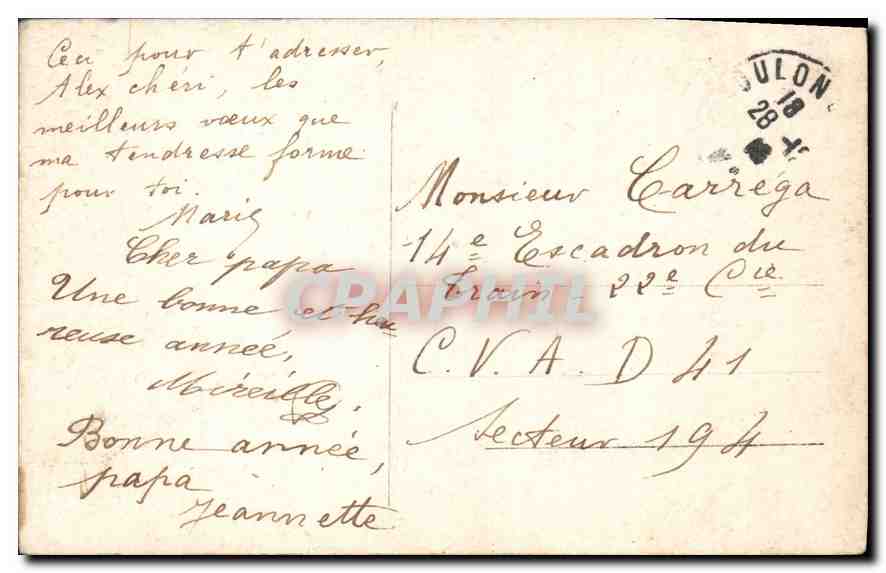 Ceci pour t'adresser,
Alex chéri, les
meilleurs vœux que
ma tendresse forme
pour toi.
Marie
Cher papa
Une bonne et heu
reuse année,
Mireille,
Bonne année,
papa
Jeannette
OULON
18
28
Monsieur Carréga
14e Escadron du
train - 22e Cie
C. V. A. D 41
Secteur 194
CPAPHIL